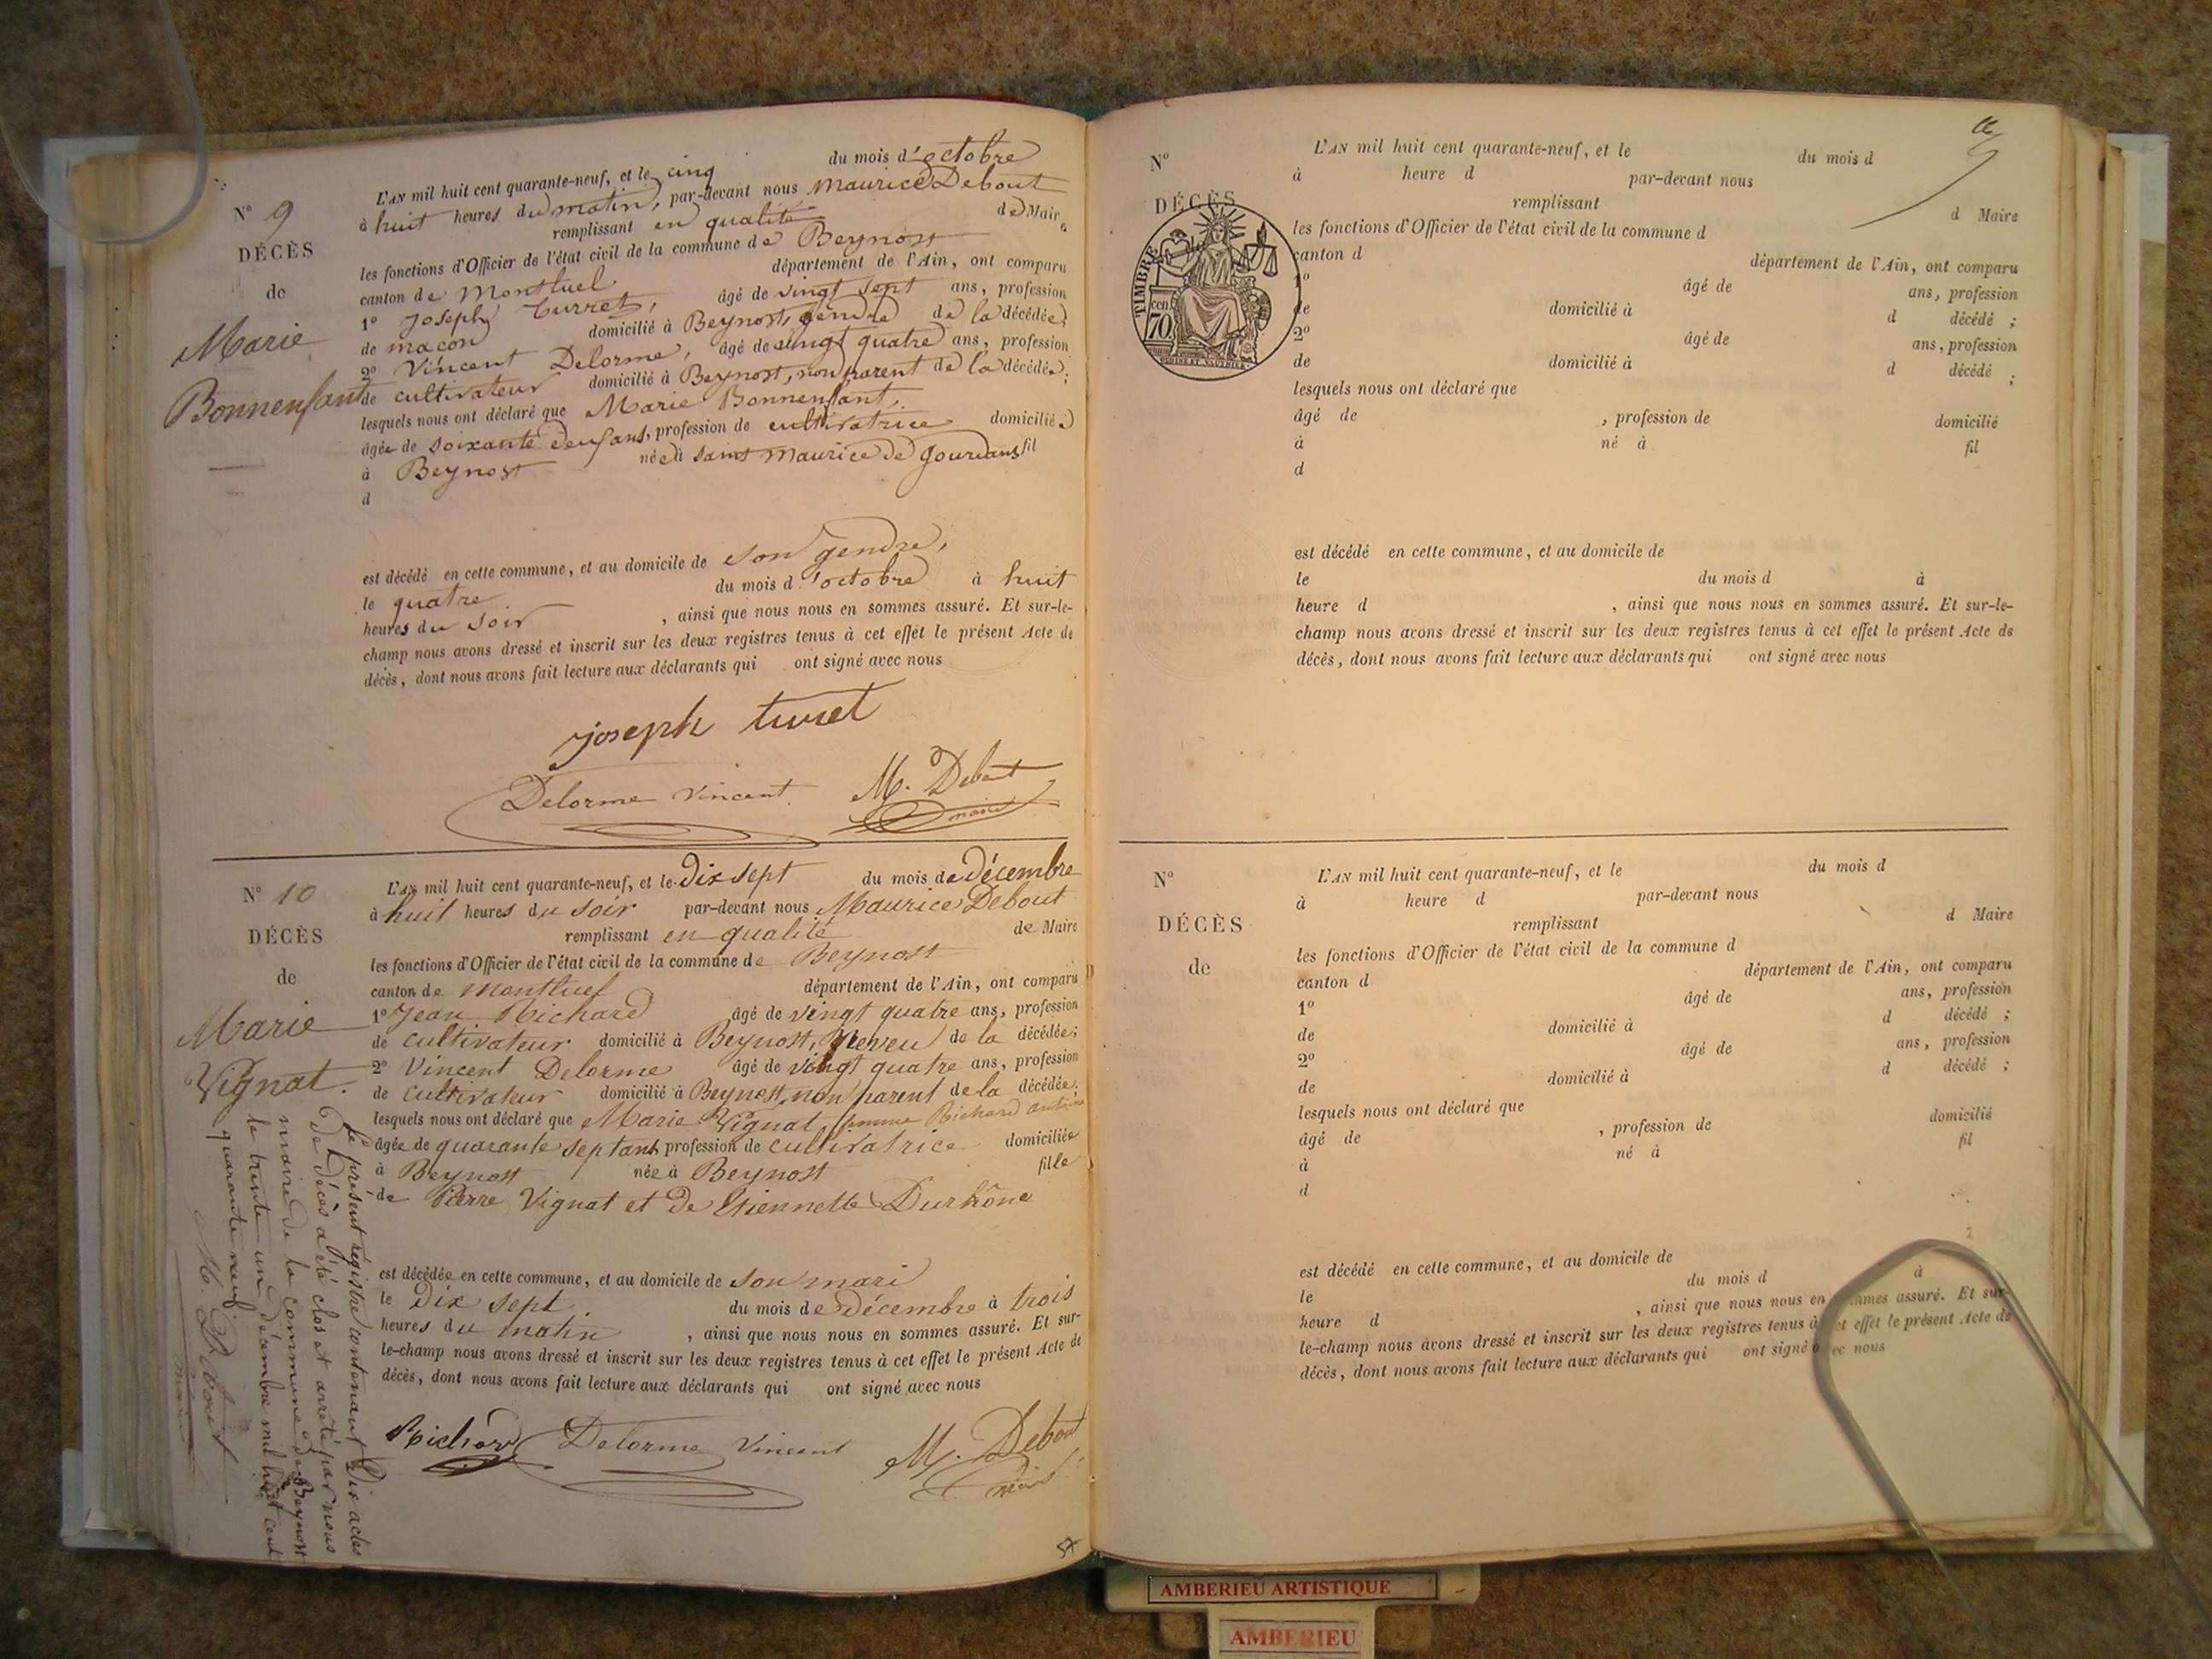 N° 9
DÉCÈS
de
Marie
Bonnenfant
L'AN mil huit cent quarante-neuf, et le cinq du mois d'octobre
à huit heures du matin, par-devant nous Maurice Debout
remplissant en qualité de Maire
les fonctions d'Officier de l'état civil de la commune de Beynost
canton de Montluel département de l'Ain, ont comparu
1° Joseph Turret, âgé de vingt sept ans, profession
de maçon domicilié à Beynost, gendre de la décédée;
2° Vincent Delorme, âgé de vingt quatre ans, profession
de cultivateur domicilié à Beynost, non parent de la décédée;
lesquels nous ont déclaré que Marie Bonnenfant,
âgée de soixante deux ans, profession de cultivatrice domiciliée
à Beynost née à saint Maurice de Gourdans fil
d
est décédé en cette commune, et au domicile de son gendre,
le quatre du mois d'octobre à huit
heures du soir, ainsi que nous nous en sommes assuré. Et sur-le-
champ nous avons dressé et inscrit sur les deux registres tenus à cet effet le présent Acte de
décès, dont nous avons fait lecture aux déclarants qui ont signé avec nous
joseph turret
Delorme Vincent M. Debout
maire
N° 10
DÉCÈS
de
Marie
Vignat.
L'AN mil huit cent quarante-neuf, et le dix sept du mois de décembre
à huit heures du soir par-devant nous Maurice Debout
remplissant en qualité de Maire
les fonctions d'Officier de l'état civil de la commune de Beynost
canton de Montluel département de l'Ain, ont comparu
1° Jean Richard âgé de vingt quatre ans, profession
de cultivateur domicilié à Beynost, neveu de la décédée;
2° Vincent Delorme âgé de vingt quatre ans, profession
de cultivateur domicilié à Beynost, non parent de la décédée.
lesquels nous ont déclaré que Marie Vignat, femme Richard antoine
âgée de quarante sept ans, profession de cultivatrice domiciliée
à Beynost née à Beynost fille
de Pierre Vignat et de Etiennette Durhône
est décédée en cette commune, et au domicile de son mari
le dix sept. du mois de décembre à trois
heures du matin, ainsi que nous nous en sommes assuré. Et sur-
le-champ nous avons dressé et inscrit sur les deux registres tenus à cet effet le présent Acte de
décès, dont nous avons fait lecture aux déclarants qui ont signé avec nous
Richard Delorme Vincent M. Debout
maire
Le présent registre contenant Dix actes
de Décès a été clos et arrêté par nous
maire de la commune de Beynost
le trente un décembre mil huit cent
quarante neuf
M. Debout
maire
57
N°
DÉCÈS
TIMBRE
70
L'AN mil huit cent quarante-neuf, et le du mois d
à heure d par-devant nous
remplissant d Maire
les fonctions d'Officier de l'état civil de la commune d
canton d département de l'Ain, ont comparu
1° âgé de ans, profession
de domicilié à d décédé ;
2° âgé de ans, profession
de domicilié à d décédé ;
lesquels nous ont déclaré que
âgé de , profession de domicilié
à né à fil
d
est décédé en cette commune, et au domicile de
le du mois d à
heure d , ainsi que nous nous en sommes assuré. Et sur-le-
champ nous avons dressé et inscrit sur les deux registres tenus à cet effet le présent Acte de
décès, dont nous avons fait lecture aux déclarants qui ont signé avec nous
N°
DÉCÈS
de
L'AN mil huit cent quarante-neuf, et le du mois d
à heure d par-devant nous
remplissant d Maire
les fonctions d'Officier de l'état civil de la commune d
canton d département de l'Ain, ont comparu
1° âgé de ans, profession
de domicilié à d décédé ;
2° âgé de ans, profession
de domicilié à d décédé ;
lesquels nous ont déclaré que
âgé de , profession de domicilié
à né à fil
d
est décédé en cette commune, et au domicile de
le du mois d à
heure d , ainsi que nous nous en sommes assuré. Et sur-
le-champ nous avons dressé et inscrit sur les deux registres tenus à cet effet le présent Acte de
décès, dont nous avons fait lecture aux déclarants qui ont signé avec nous
AMBERIEU ARTISTIQUE
AMBERIEU